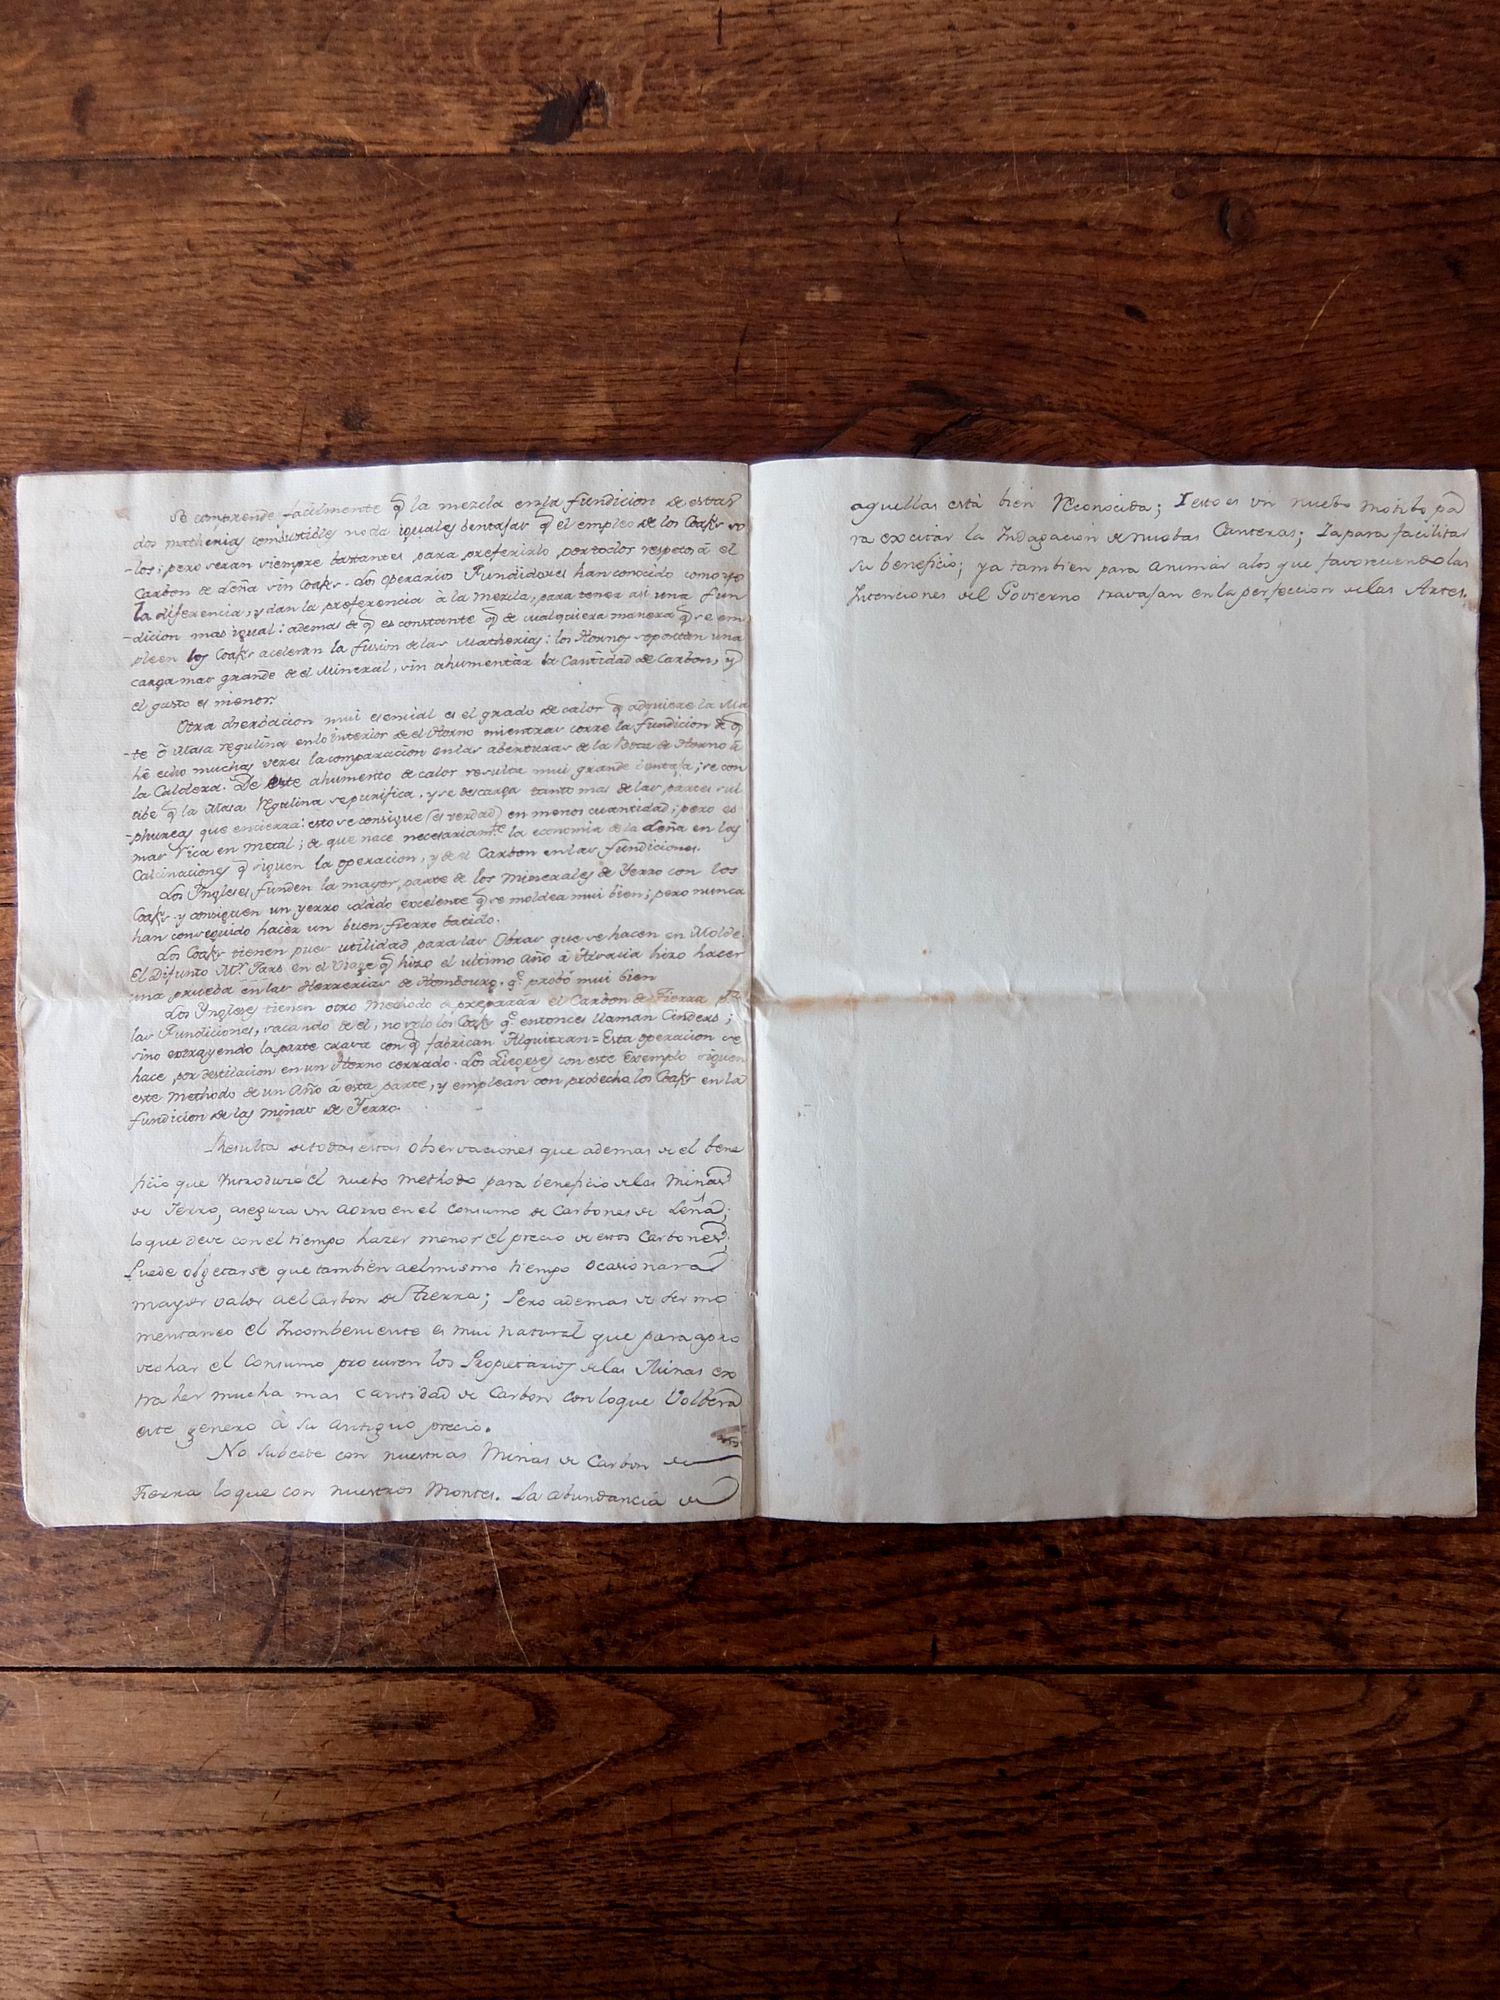 Se comprende fácilmente q̃ la mezcla en la fundicion de estas
dos matherias combustibles no da iguales bentajas q̃ el empleo de los Coaks so
-los; pero seran siempre bastantes para preferirlo por todos respetos á el
Carbon de Leña sin Coaks. Los Operarios Fundidores han conocido como yo
la diferencia, y dan la preferencia à la mezcla, para tener asi una fun
-dicion mas igual: ademas de q̃ es constante q̃ de qualquiera manera q̃ se em
pleen los Coaks aceleran la fusion de las Matherias: los Hornos soportan una
carga mas grande de el Mineral, sin ahumentar la Cantidad de Carbon, y
el gasto es menor.
Otra obserbacion mui esencial es el grado de calor q̃ adquiere la Ma
-te ô Masa regulina en lo interior de el Horno mientras corre la fundicion de q̃
hê echo muchas veces la comparacion en las aberturas de la Boca de Horno â
la Caldera. De este ahumento de calor resulta mui grande bentaja; se con
cibe q̃ la Masa Regulina se purifica, y se descarga tanto mas de las partes sul
-phureas que encierra: esto se consigue (es verdad) en menos cuantidad; pero es
mas rica en metal; de que nace necesariamte la economia de la Leña en las
Calcinaciones q̃ siguen la operacion, y de el Carbon en las fundiciones.
Los Ingleses funden la mayor parte de los minerales de Yerro con los
Coaks y consiguen un yerro colado excelente q̃ se moldea mui bien; pero nunca
han conseguido hacer un buen fierro batido.
Los Coaks tienen pues utilidad para las Obras que se hacen en Molde.
El Difunto Mr. Jars en el Viage q̃ hizo el ultimo año â hizo hacer
una prueba en las Herrerias de Hombourg. qe. probó mui bien
Los Ingleses tienen otro Methodo de preparar el Carbon de Tierra pra
las Fundiciones, sacando de el, no solo los Coaks qe. entonces llaman Cinders;
sino extrayendo la parte crasa con q̃ fabrican Alquitran = Esta operacion se
hace por destilacion en un Horno cerrado. Los Liegeses con este Exemplo siguen
este Methodo de un Año á esta parte, y emplean con probecho los Coaks en la
fundicion de las minas de Yerro.
Resulta de todas estas Observaciones que ademas de el bene
ficio que Introducirá el nuebo methodo para beneficio de las Minas
de Ierro, asegura un aorro en el Consumo de Carbones de Leña;
lo que deve con el tiempo hazer menor el precio de estos Carbones.
Puede obgetarse que tambien a el mismo tiempo ocasionara
mayor valor a el Carbon de Tierra; Pero ademas de ser mo
mentaneo el Incombeniente es mui natural que para apro
vechar el Consumo procuren los Propietarios de las Minas ex
traher mucha mas cantidad de Carbon con lo que Volbera
este genero à su antiguo precio.
No subcede con nuestras Minas de Carbon de
Tierra lo que con nuestros Montes. La abundancia de
aquellas está bien Reconocida; I esto es un nuebo motibo pa
ra excitar la Indagacion de nuebas Canteras; Ia para facilitar
su beneficio; ya tambien para animar a los que favoreciendo las
Intenciones del Govierno travajan en la perfeccion de las Artes.